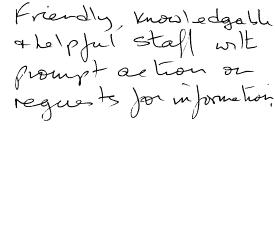 Friendly, knowledgable
+ helpful staff with
prompt action on
requests for information.